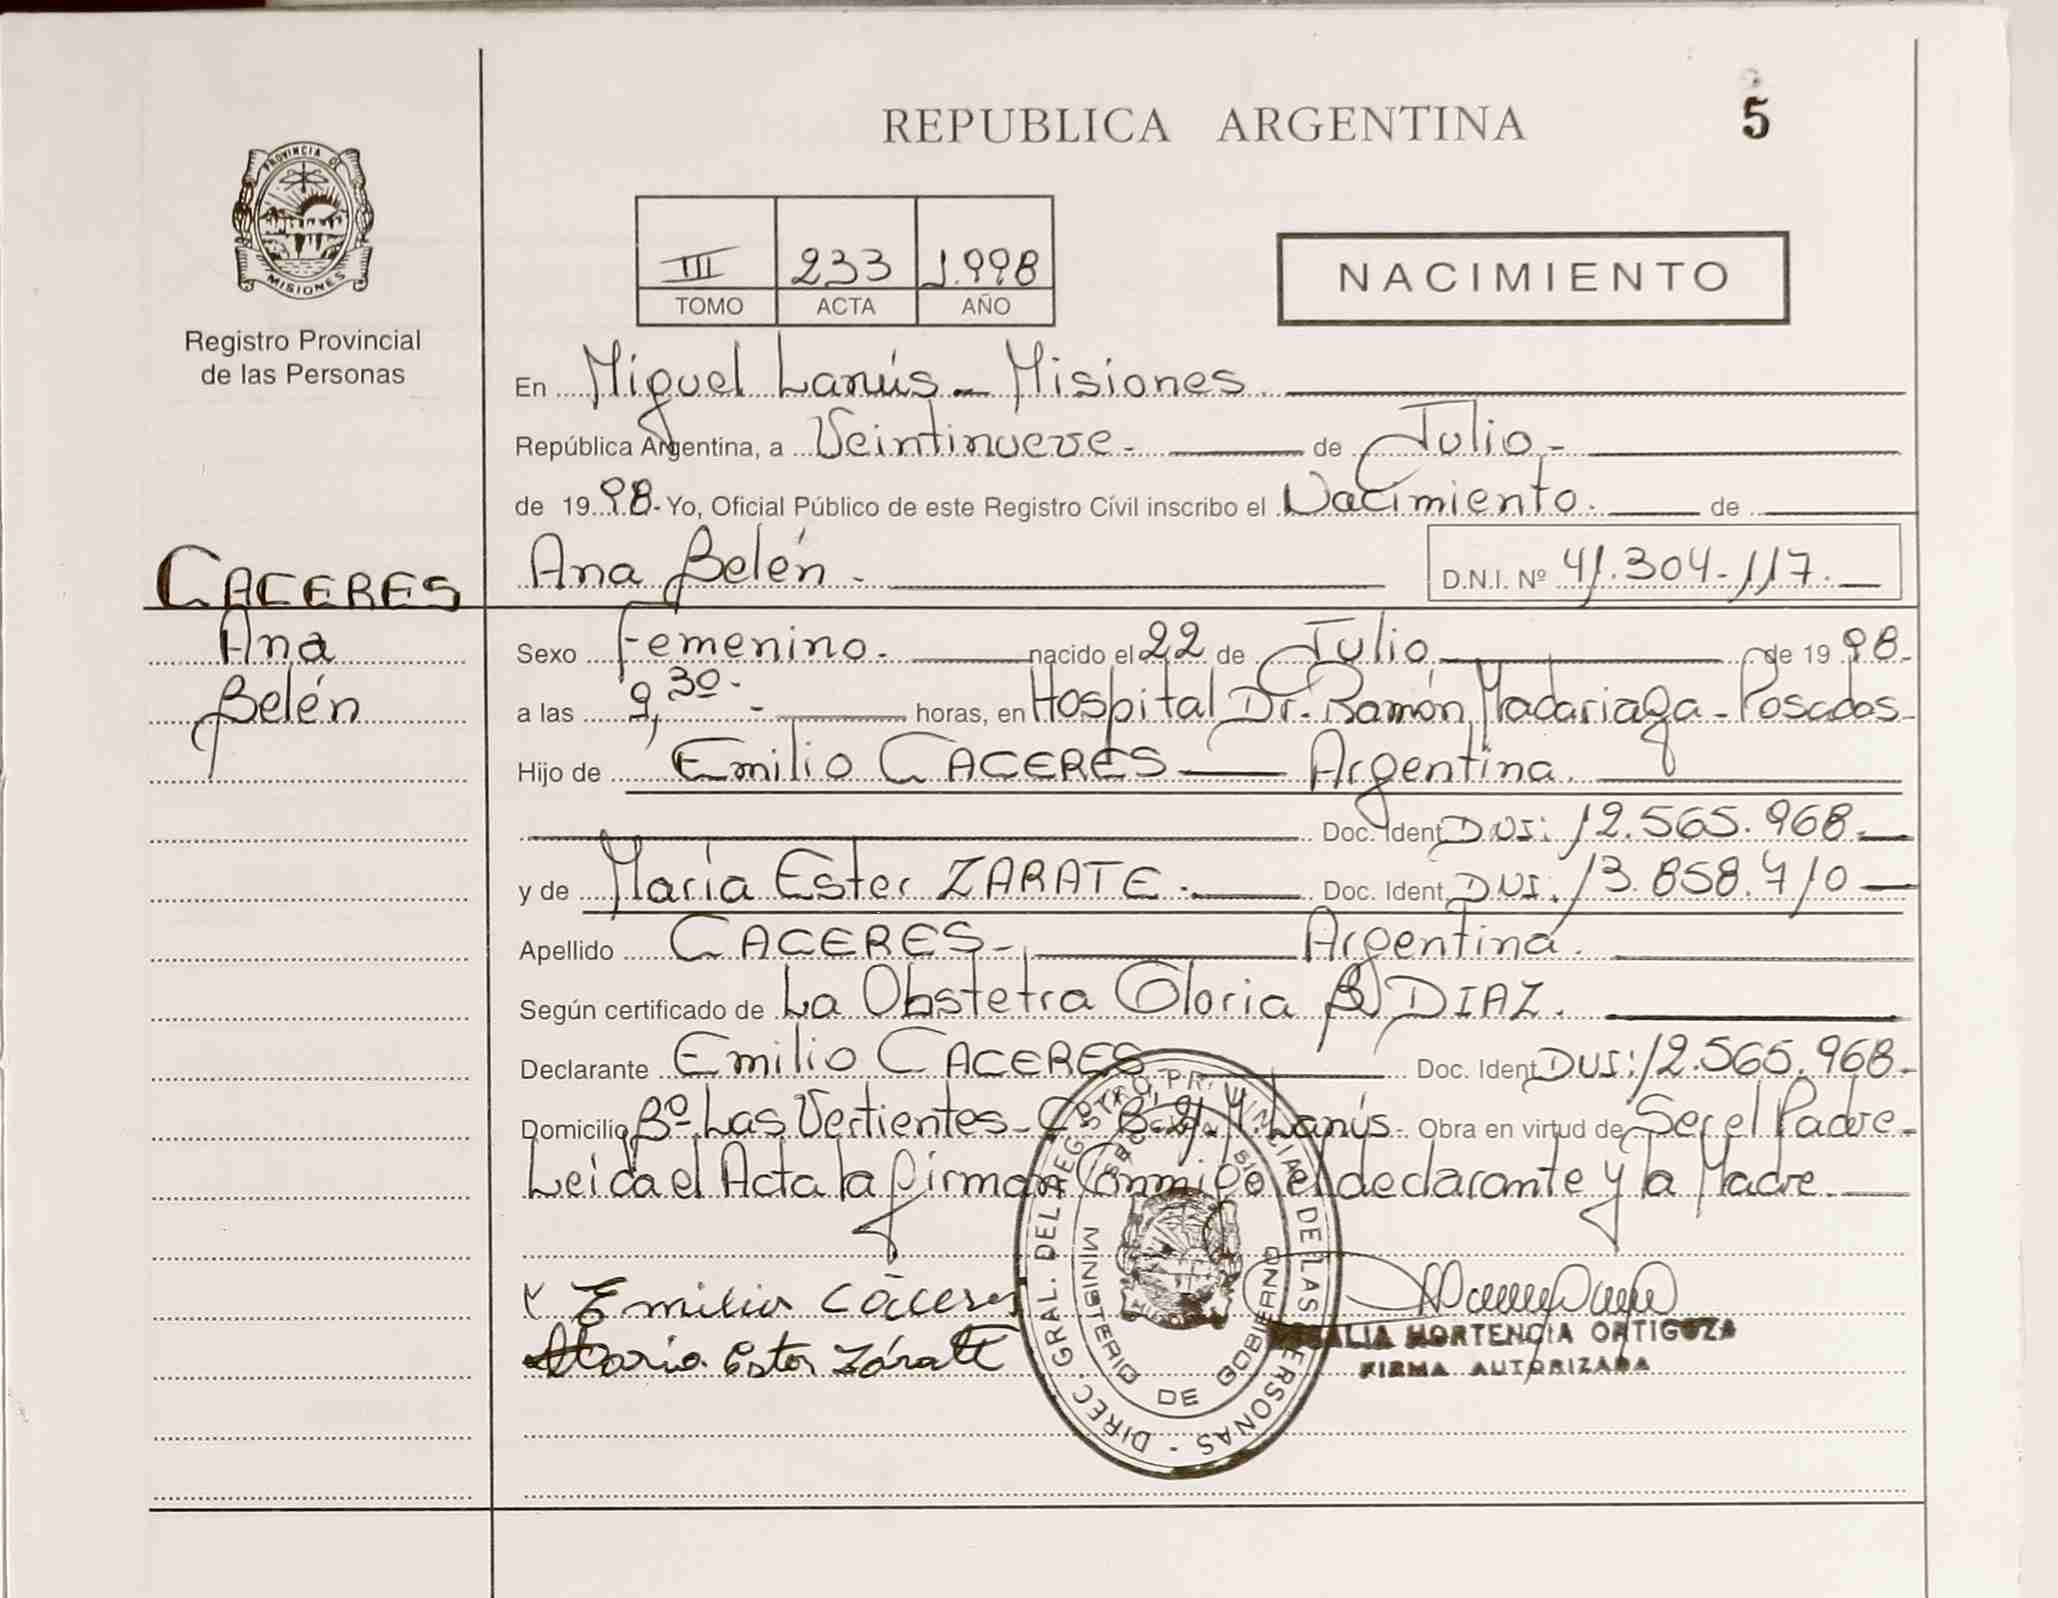 REPUBLICA ARGENTINA
5
PROVINCIA DE
MISIONES
Registro Provincial
de las Personas
III 233 1.998
TOMO ACTA AÑO
NACIMIENTO
En Miguel Lanús - Misiones
República Argentina, a Veintinueve - de Julio -
de 1998- Yo, Oficial Público de este Registro Civil inscribo el Nacimiento. de
CACERES
Ana
Belén
Ana Belén - D.N.I. Nº 41.304.117.
Sexo Femenino. nacido el 22 de Julio de 1998-
a las 9,30 - horas, en Hospital Dr. Ramón Madariaga - Posadas-
Hijo de Emilio CACERES Argentina.
Doc. Ident DNI: 12.565.968-
y de María Ester ZARATE. Doc. Ident DNI: 13.858.710
Apellido CACERES- Argentina.
Según certificado de La Obstetra Gloria B DIAZ.
Declarante Emilio CACERES Doc. Ident DNI: 12.565.968-
Domicilio Bº Las Vertientes- Cº B-21. M. Lanús- Obra en virtud de Ser el Padre-
Leida el Acta la firman Conmigo el declarante y la Madre.
Emilio Cáceres
Maria Ester Zárate
DIREC. GRAL. DEL REGISTRO PROVINCIAL DE LAS PERSONAS -
MINISTERIO DE GOBIERNO
HORTENCIA ORTIGOZA
FIRMA AUTORIZADA